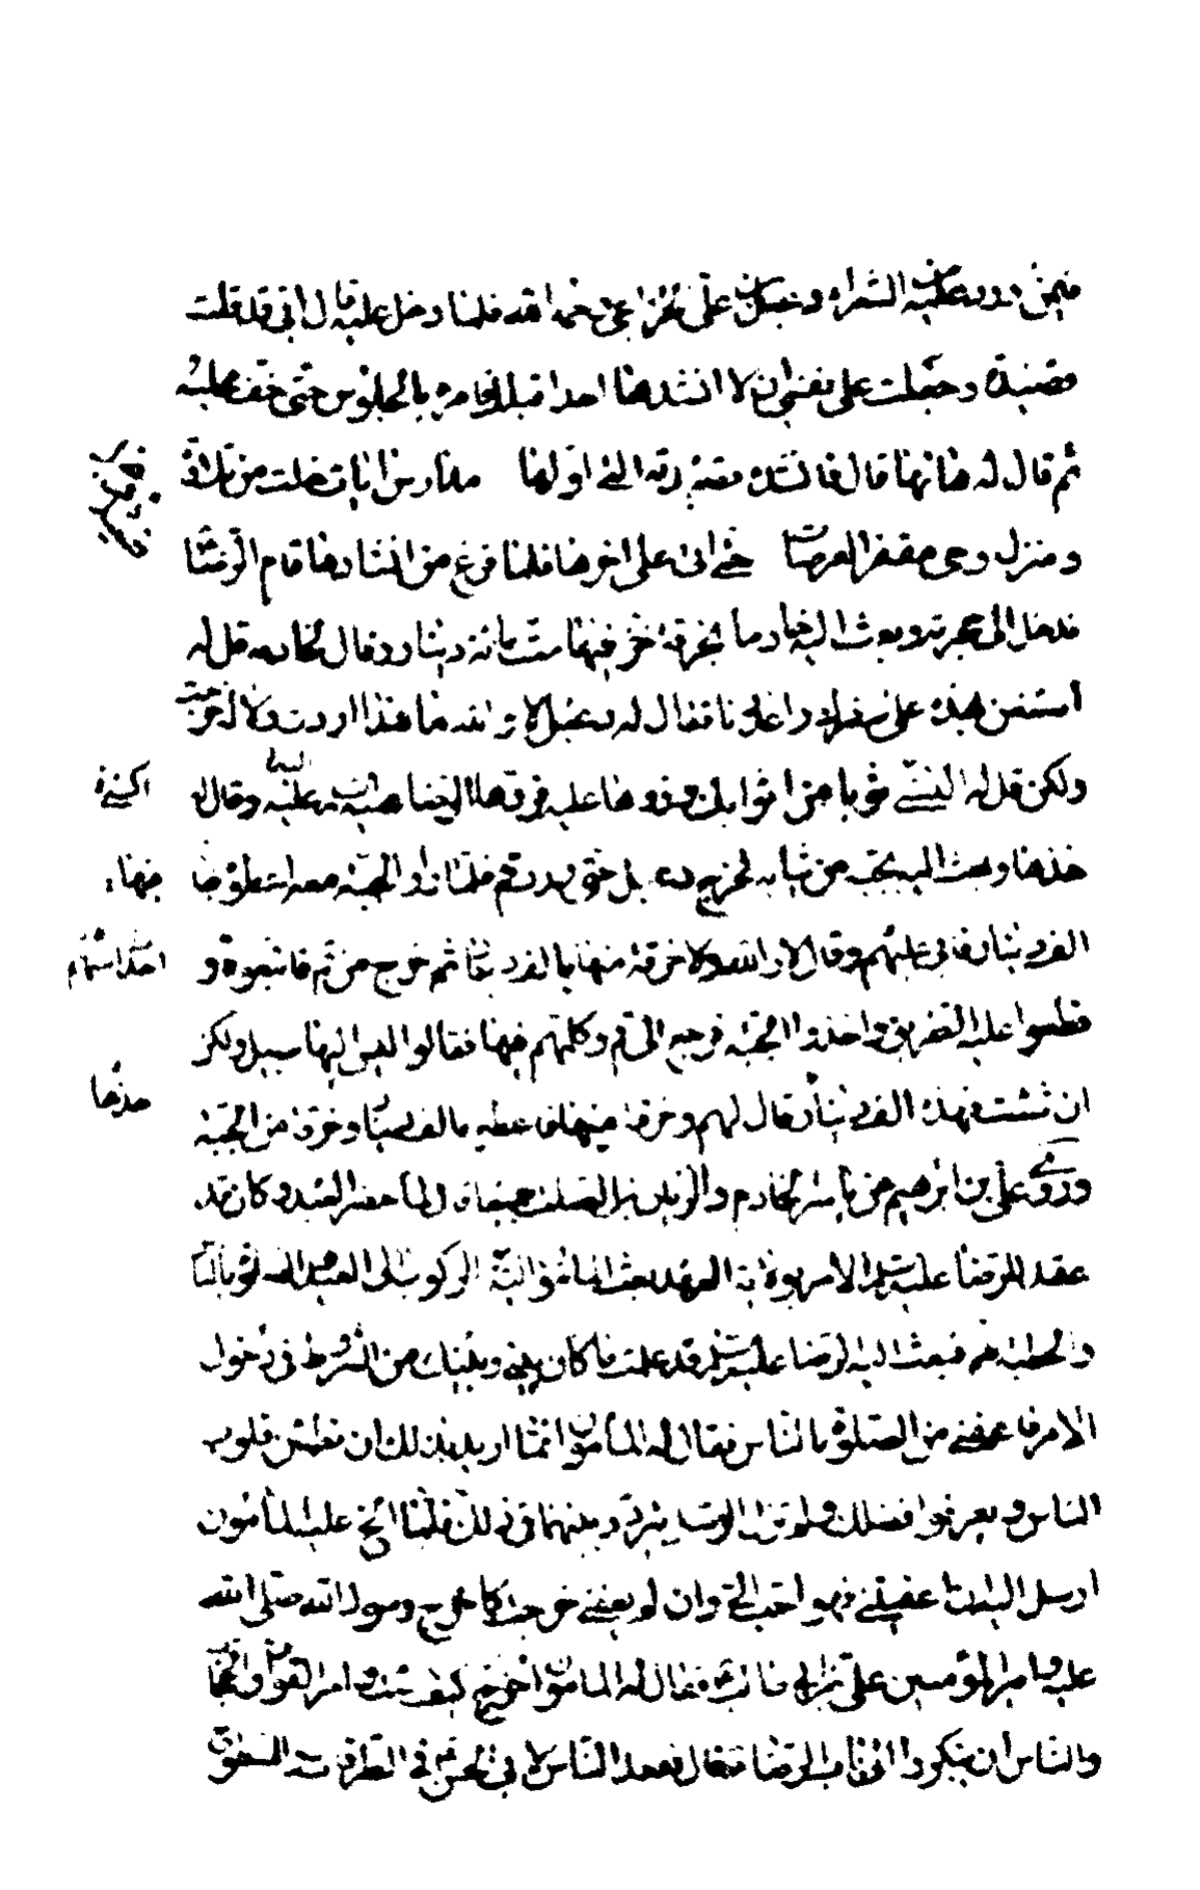 فيمن ورد عليه من الشعراء دعبل بن علي الخزاعي رحمه الله فلما دخل عليه قال اني قد قلت
قصيدة وجعلت على نفسي ان لا انشدها احدا قبلك فامره بالجلوس حتى خف مجلسه
ثم قال له هاتها قال فانشده قصيدته التي اولها مدارس ايات خلت من تلاوة
ومنزل وحي مقفر العرصات حتى اتى على اخرها فلما فرغ من انشادها قام الرضا
فدخل الى حجرته وبعث اليه خادما بخرقة خز فيها ستمائة دينار وقال لخادمه قل له
استعن بهذه على سفرك واعذرنا فقال له دعبل لا والله ما هذا اردت ولا له خرجت
ولكن قل له اكسني ثوبا من اثوابك وردها عليه فردها اليه الرضا عليه السلم وقال له
خذها وبعث اليه بجبة من ثيابه فخرج دعبل حتى ورد قم فلما راوا الجبة معه اعطوه بها
الف دينار فابى عليهم وقال لا والله ولا خرقة منها بالف دينار ثم خرج من قم فاتبعوه و
قطعوا عليه الطريق واخذوا الجبة فرجع الى قم وكلمهم فيها فقالوا ليس اليها سبيل ولكن
ان شئت فهذه الف دينار قال لهم وخرقة منها فاعطوه بالف دينار وخرقة من الجبة
وروى علي بن ابرهيم عن ياسر الخادم والريان بن الصلت جميعا قال لما حضر العيد وكان قد
عقد للرضا عليه السلم الامر بولاية العهد بعث المامون اليه في الركوب الى العيد والصلوة بالناس
والخطبة بهم فبعث اليه الرضا عليه السلم قد علمت ما كان بيني وبينك من الشروط في دخول
الامر فاعفني من الصلوة بالناس فقال له المأمون انما اريد بذلك ان تطمئن قلوب
الناس ويعرفوا فضلك ولم تزل الرسل تردد بينهما في ذلك فلما الح عليه المأمون
ارسل اليه ان اعفيتني فهو احب الي وان لم تعفني خرجت كما خرج رسول الله صلى الله
عليه وامير المؤمنين علي بن ابي طالب فقال له المامون اخرج كيف شئت وامر القواد والحجاب
والناس ان يبكروا الى باب الرضا فقال فقعد الناس لابي الحسن في الطرقات والسطوح
اكسني
منها
خذها